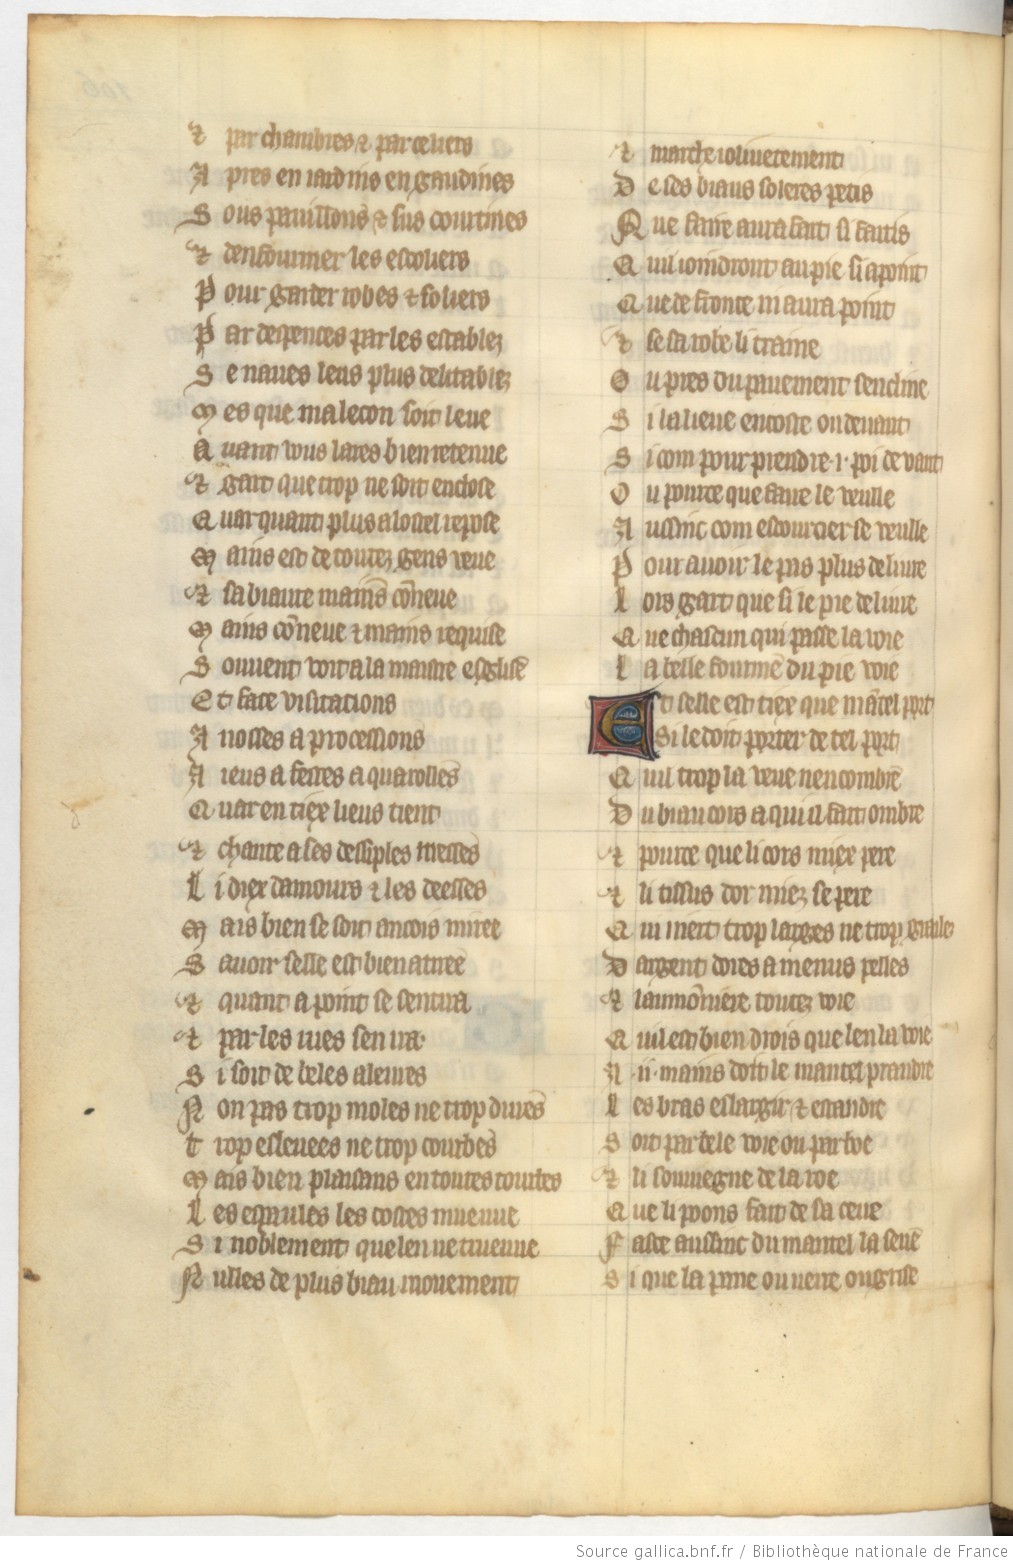 ⁊ par chambres ⁊ par celiers
A pres en iardins en gaudines
S ous pauillons ⁊ sus courtines
⁊ denfourmer les escoliers
P our garder robes ⁊ soliers
P ar despences par les estables
S e naues leus plus delitables
M es que ma lecon soit leue
A uant vous lares bien retenue
⁊ gart que trop ne soit enclose
Q uar quant plus a lostel repose
M ains est de toutez gens veue
⁊ sa biaute mains cōneue
M ains cōneue ⁊ mains requise
S ouuent voit a la maistre esglise
E t face visitations
A noces a processions
A ieus a festes a quarolles
Q uar en tiex lieus tient
⁊ chante a ses desciples messes
L i diex damours ⁊ les deesses
M ais bien se soit ancois miree
S auoir selle est bien atiree
⁊ quant a point se sentira
⁊ par les rues sen ira
S i soit de beles aleures
N on pas trop moles ne trop dures
T rop esleuees ne trop courbes
M ais bien plaisans en toutes tourbes
L es espaules les costes mueuue
S i noblement que len ne trueuue
N ulles de plus biau mouement
⁊ marche ioliuetement
D e ses biaus soleres petis
Q ue faire aura fait si faitis
Q uil ioindront au pie si a point
Q ue de fronce ni aura point
⁊ se sa robe li traine
O u pres du pauement sencline
S i la lieue encoste ou deuant
S i com pour prendre .i. poi de vant
O u pource que faire le veulle
A ussinc com escourcier se veulle
P our auoir le pas plus deliure
L ors gart que si le pie deliure
Q ue chascun qui passe la voie
L a belle fourme du pie voie
E t selle est tiex que mātel port
Si le doit porter de tel port
Q uil trop la veue nencombre
D u biau cors a qui il fait ombre
⁊ pource que li cors miex pere
⁊ li tissus dor miez se pere
Q ui niert trop larges ne trop grailes
D argent dores a menus pelles
⁊ laumōniere toutez voie
Q uil est bien drois que len la voie
A .ii. mains doit le mantel prandre
L es bras eslargir ⁊ estandre
S oit par bele voie ou par boe
⁊ li souuiegne de la roe
Q ue li poons fait de sa ceue
F ace aussinc du mantel la seue
S i que la pene ou vere ou grise
Source gallica.bnf.fr / Bibliothèque nationale de France